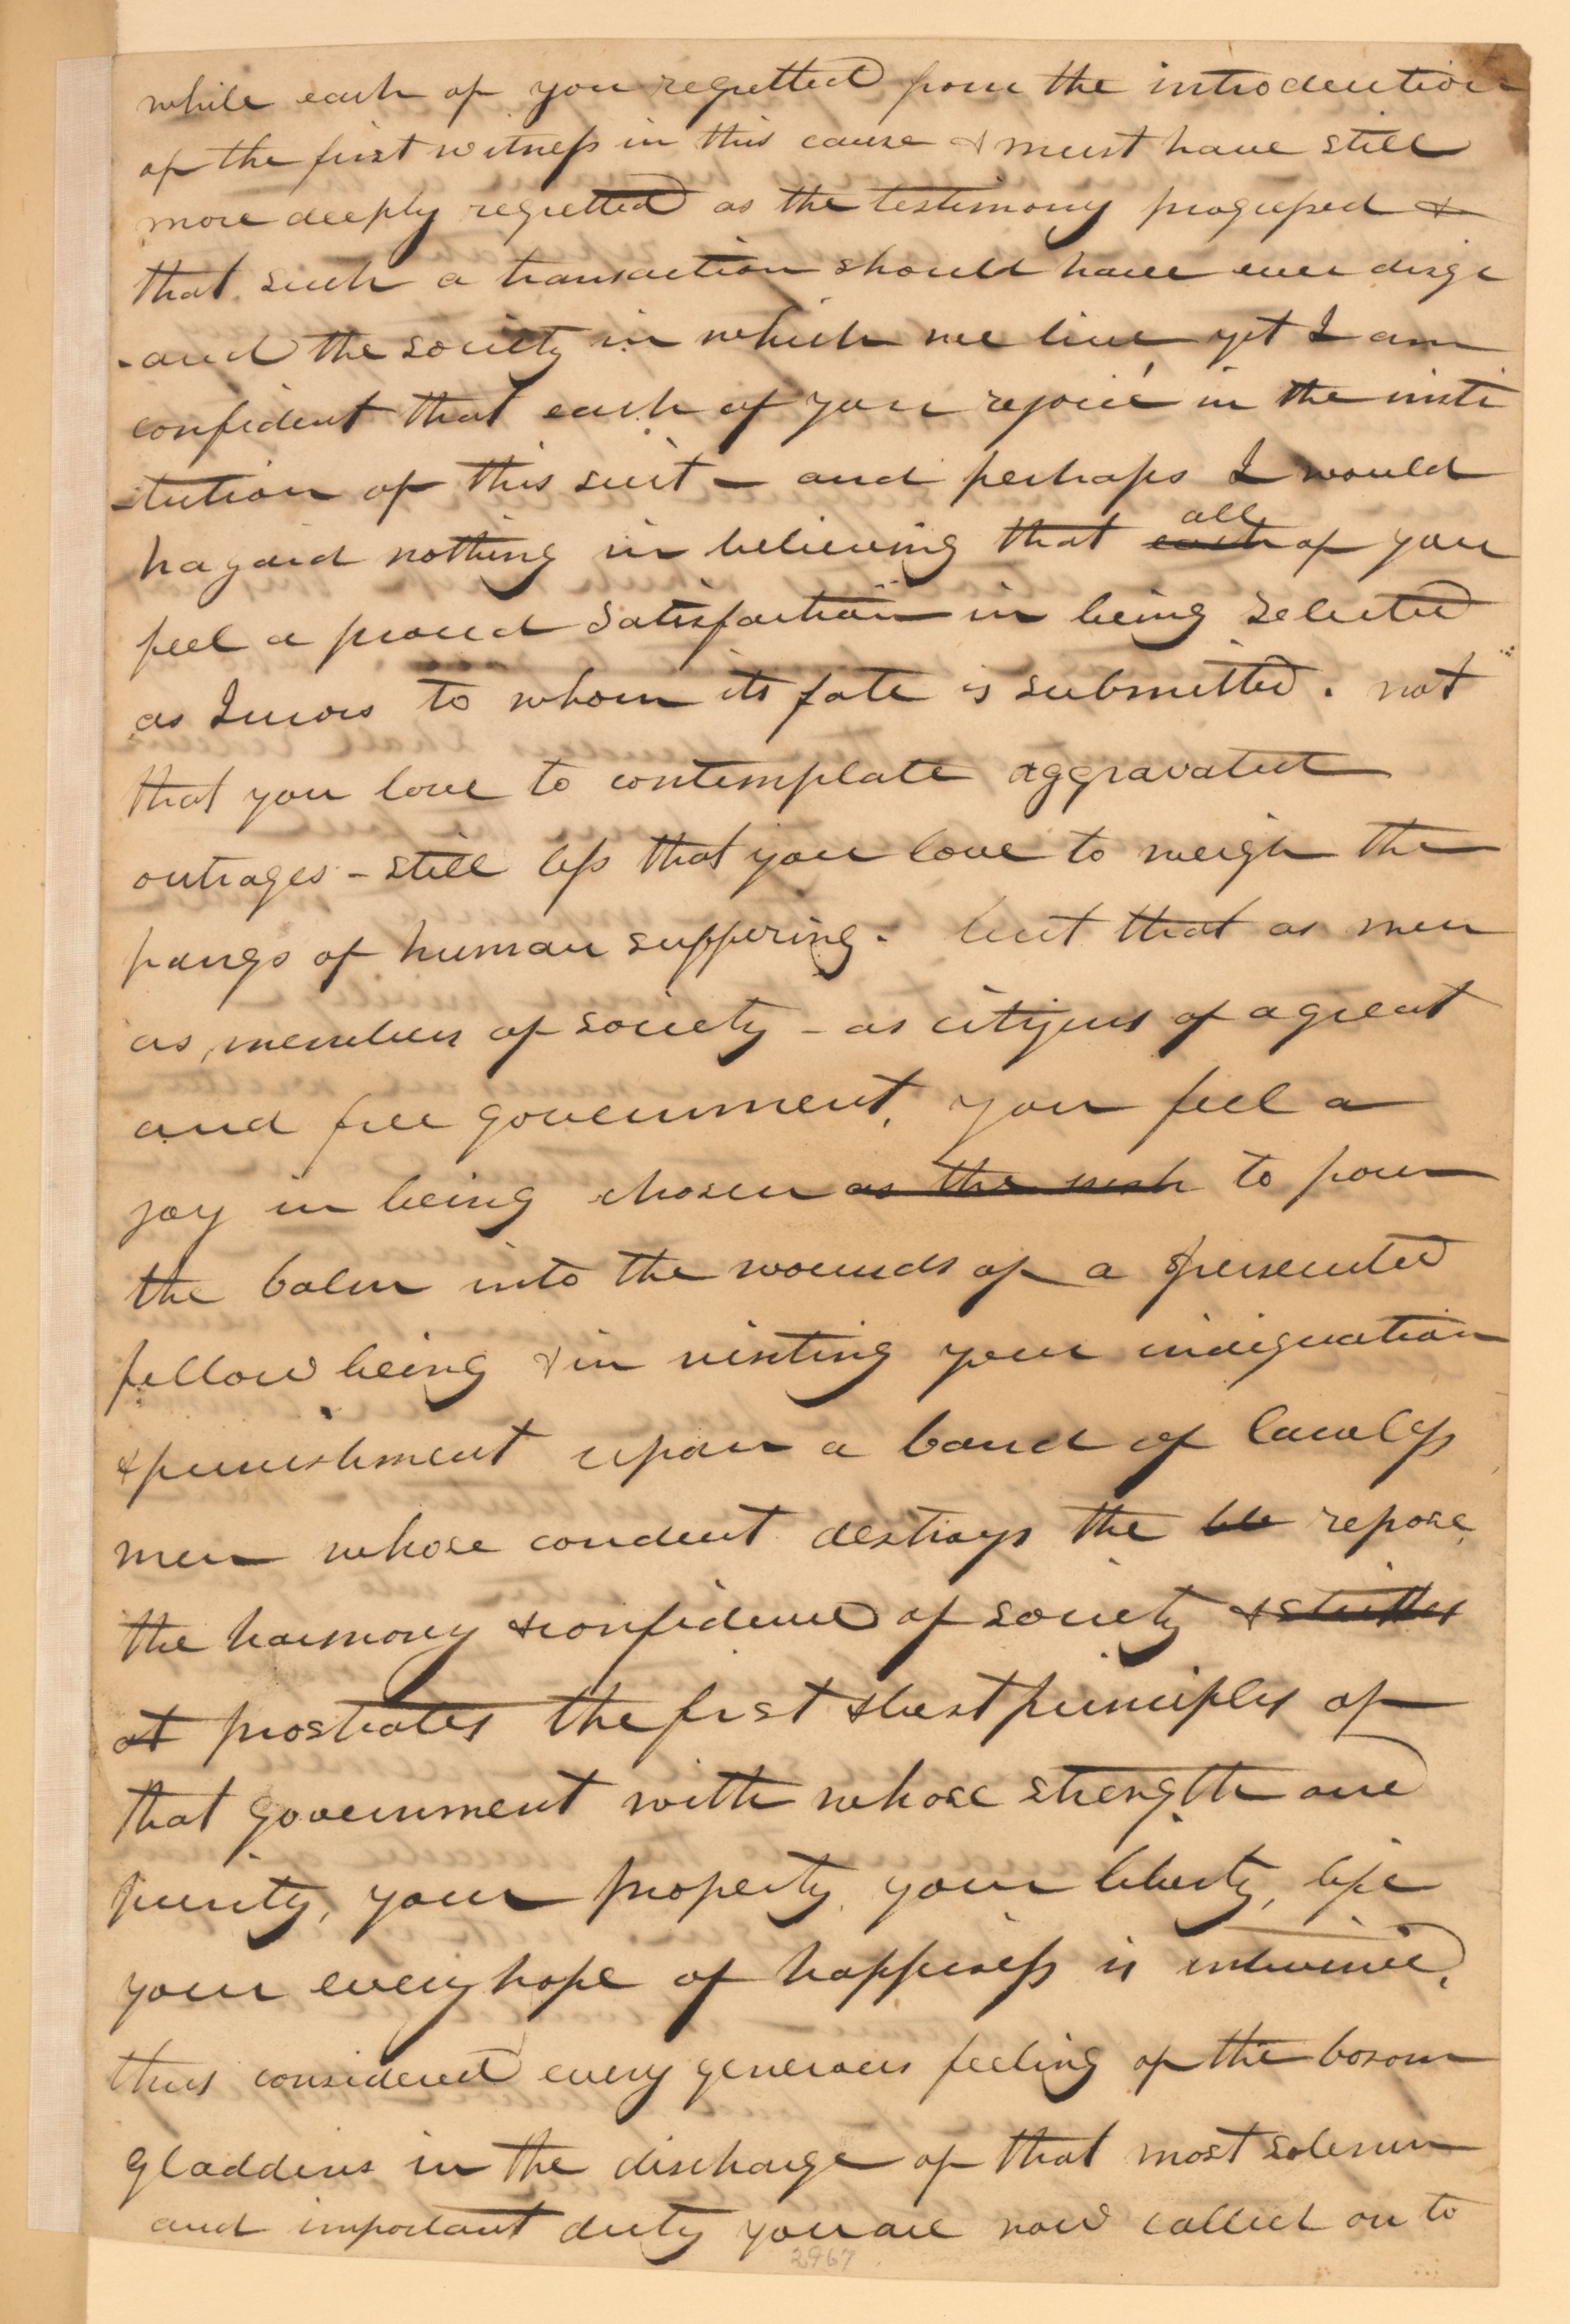 while each of you regretted from the introduction
of the first witness in this cause & must have still
more deeply regretted as the testimony progressed &
that such a transaction should have ever disgr
-aced the society in which we live yet I am
confident that each of you rejoice in the insti
-tution of this suit - and perhaps I would
hazard nothing in believing that each all of you
feel a proud satisfaction in being selected
as Jurors to whom its fate is submitted. not
that you love to contemplate aggravated
outrages - still less that you love to weigh the
pangs of human suffering. but that as men
as members of society - as citizens of a great
and free government, you feel a
joy in being chosen as the to pour
the balm into the wounds of a persecuted
fellow being & in visiting your indignation
& punishment upon a band of lawless
men whose conduct destroys the repose
the harmony & confidence of society & strikes
at prostrates the first & best principles of
that government with whose strength and
purity, your property, your liberty, life
your every hope of happiness is intwined,
thus considered every generous feeling of the bosom
gladdens in the discharge of that most solemn
and important duty you are now called on to
2967